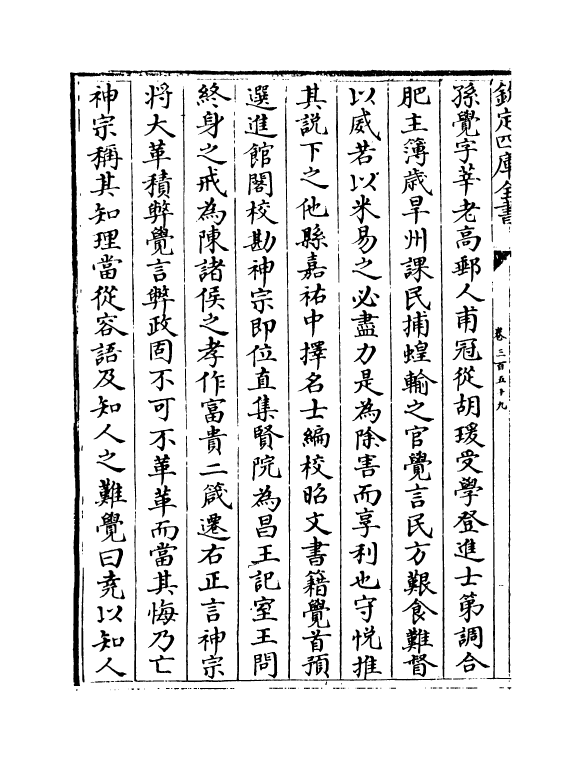 欽定四庫全書
卷三百五十九
孫覺字莘老高郵人甫冠從胡瑗受學登進士第調合
肥主簿歲旱州課民捕蝗輸之官覺言民方艱食難督
以威若以米易之必盡力是為除害而享利也守悅推
其説下之他縣嘉祐中擇名士編校昭文書籍覺首預
選進館閣校勘神宗即位直集賢院為昌王記室王問
終身之戒為陳諸侯之孝作富貴二箴遷右正言神宗
将大革積弊覺言弊政固不可不革革而當其悔乃亡
神宗稱其知理當從容語及知人之難覺曰堯以知人